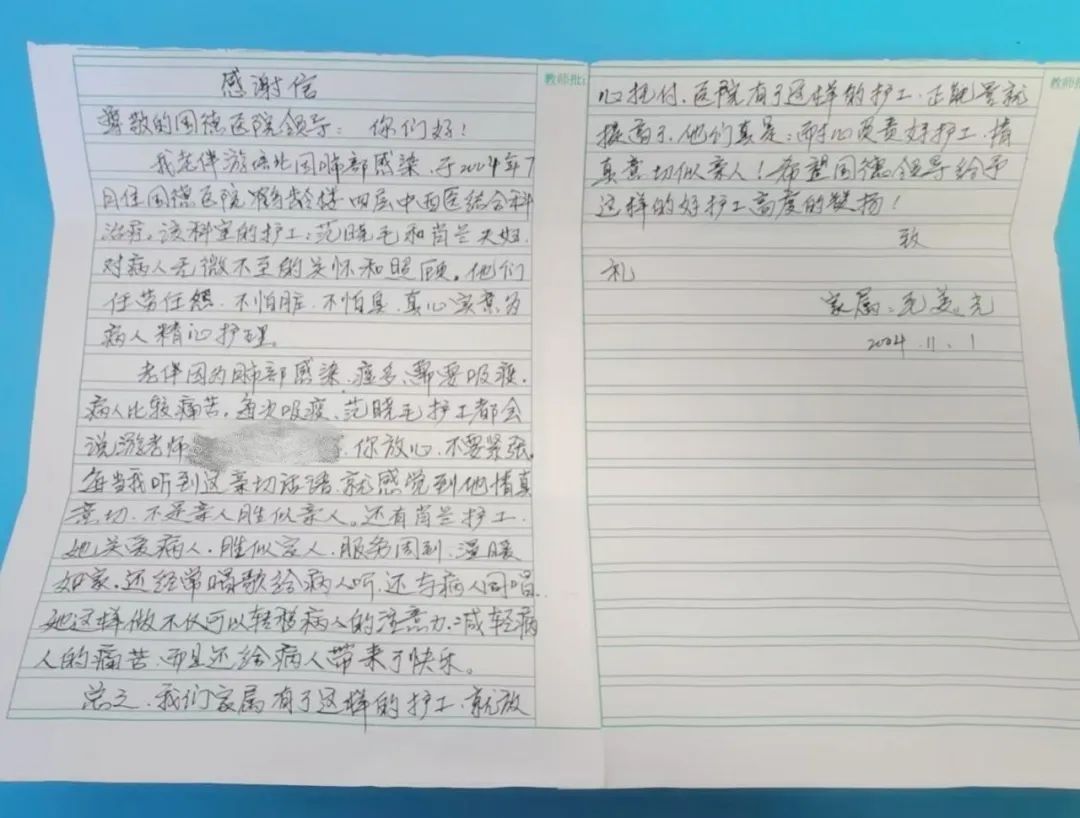 感谢信
尊敬的国德医院领导：你们好！
我老伴游语北因肺部感染，于2024年7
月住国德医院鹤龄楼四层中西医结合科
治疗。该科室的护工：范晓毛和肖兰夫妇，
对病人无微不至的关怀和照顾。他们
任劳任怨，不怕脏，不怕臭，真心实意为
病人精心护理。
老伴因为肺部感染，痰多、需要吸痰，
病人比较痛苦，每次吸痰、范晓毛护工都会
说游老师，你放心，不要紧张。
每当我听到这亲切话语，就感觉到他情真
意切，不是亲人胜似亲人。还有肖兰护工，
她关爱病人，胜似家人，服务周到，温暖
如家，还经常唱歌给病人听，还与病人同唱，
她这样做不仅可以转移病人的注意力，减轻病
人的痛苦，而且还给病人带来了快乐。
总之，我们家属有了这样的护工，就放
教师批：
心托付，医院有了这样的护工，正能量就
提高了，他们真是：耐心负责好护工，情
真意切似亲人！希望国德领导给予
这样的好护工高度的赞扬！
致
礼
家属：毛美
2024.11.1
教师批